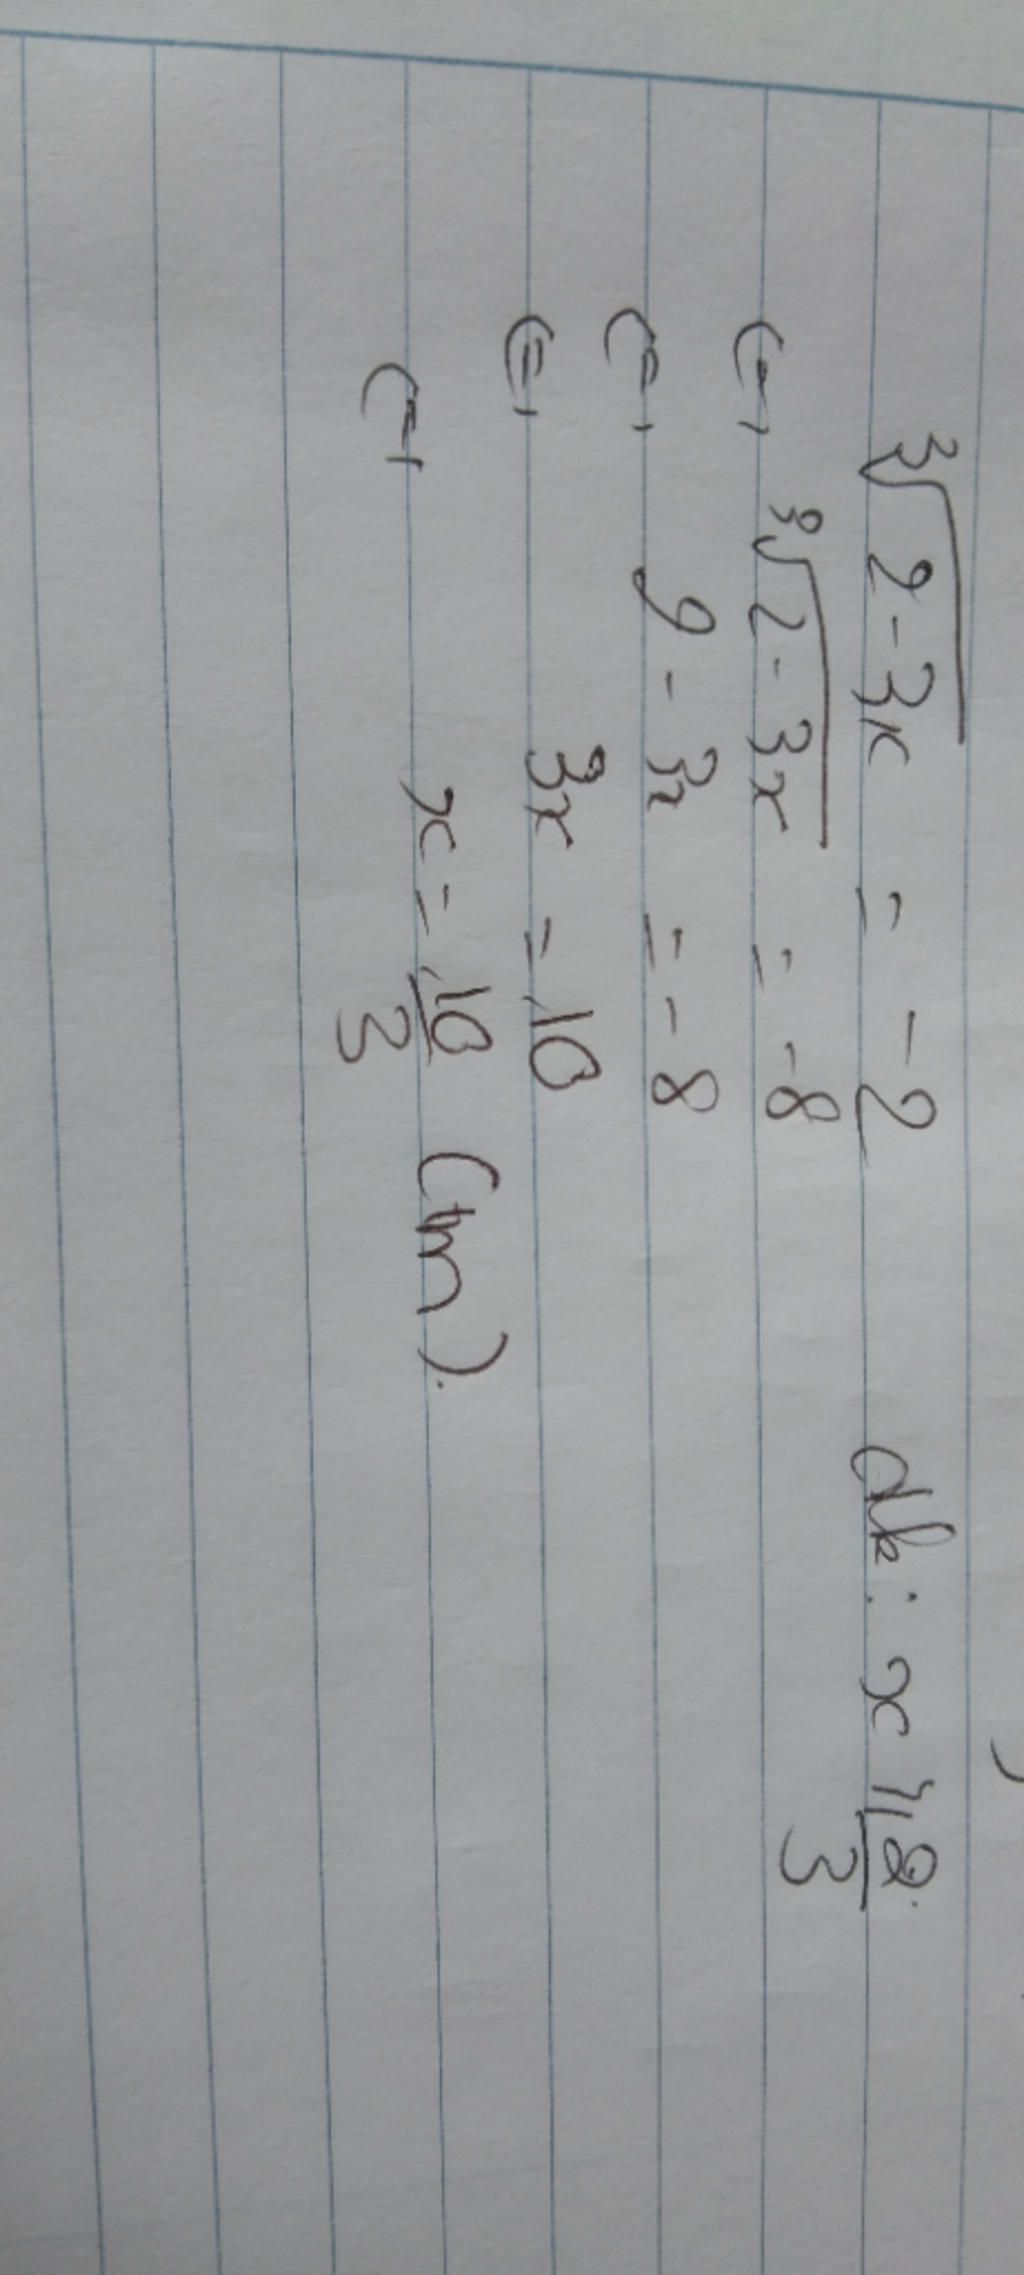 ∛(2-3x) = -2 đk: x ≥ 2/3
(=) ∛(2-3x) = -8
(=) 2 - 3x = -8
(=) 3x = 10
(=) x = 10/3 (tm).